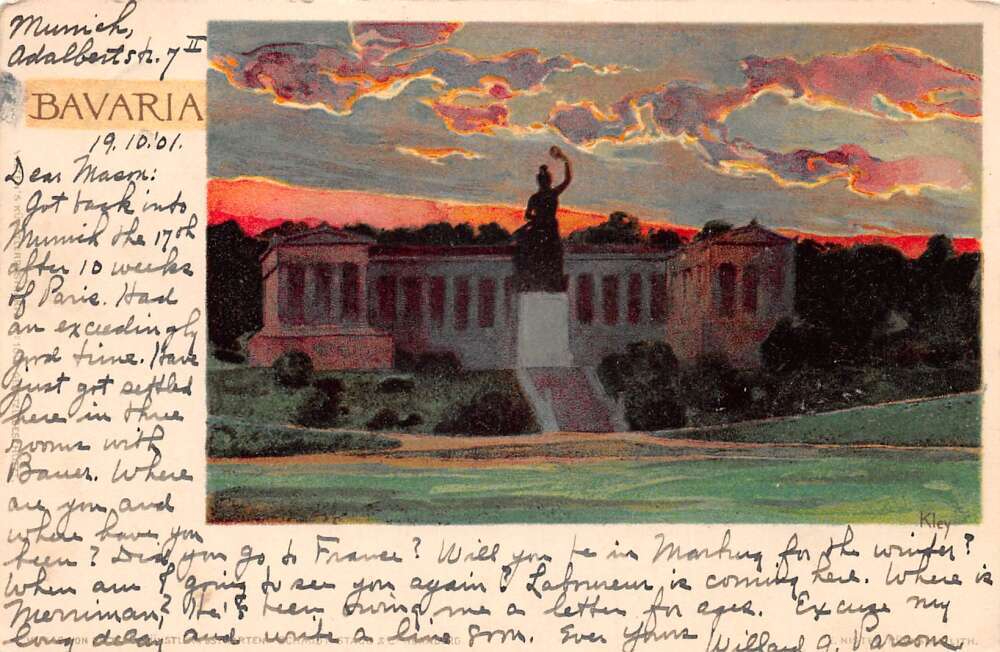 Munich,
Adalbertstr. 7 II
BAVARIA
19.10.'01.
Dear Mason:
Got back into
Munich the 17th
after 10 weeks
of Paris. Had
an exceedingly
good time. Have
just got settled
here in three
rooms with
Bauer. Where
are you and
where have you
been? Did you go to France? Will you be in Marburg for the winter?
When am I going to see you again? Laboureur is coming here. Where is
Merriman? He's been owing me a letter for ages. Excuse my
long delay and write a line soon. Ever yours
Willard G. Parsons.
Kley